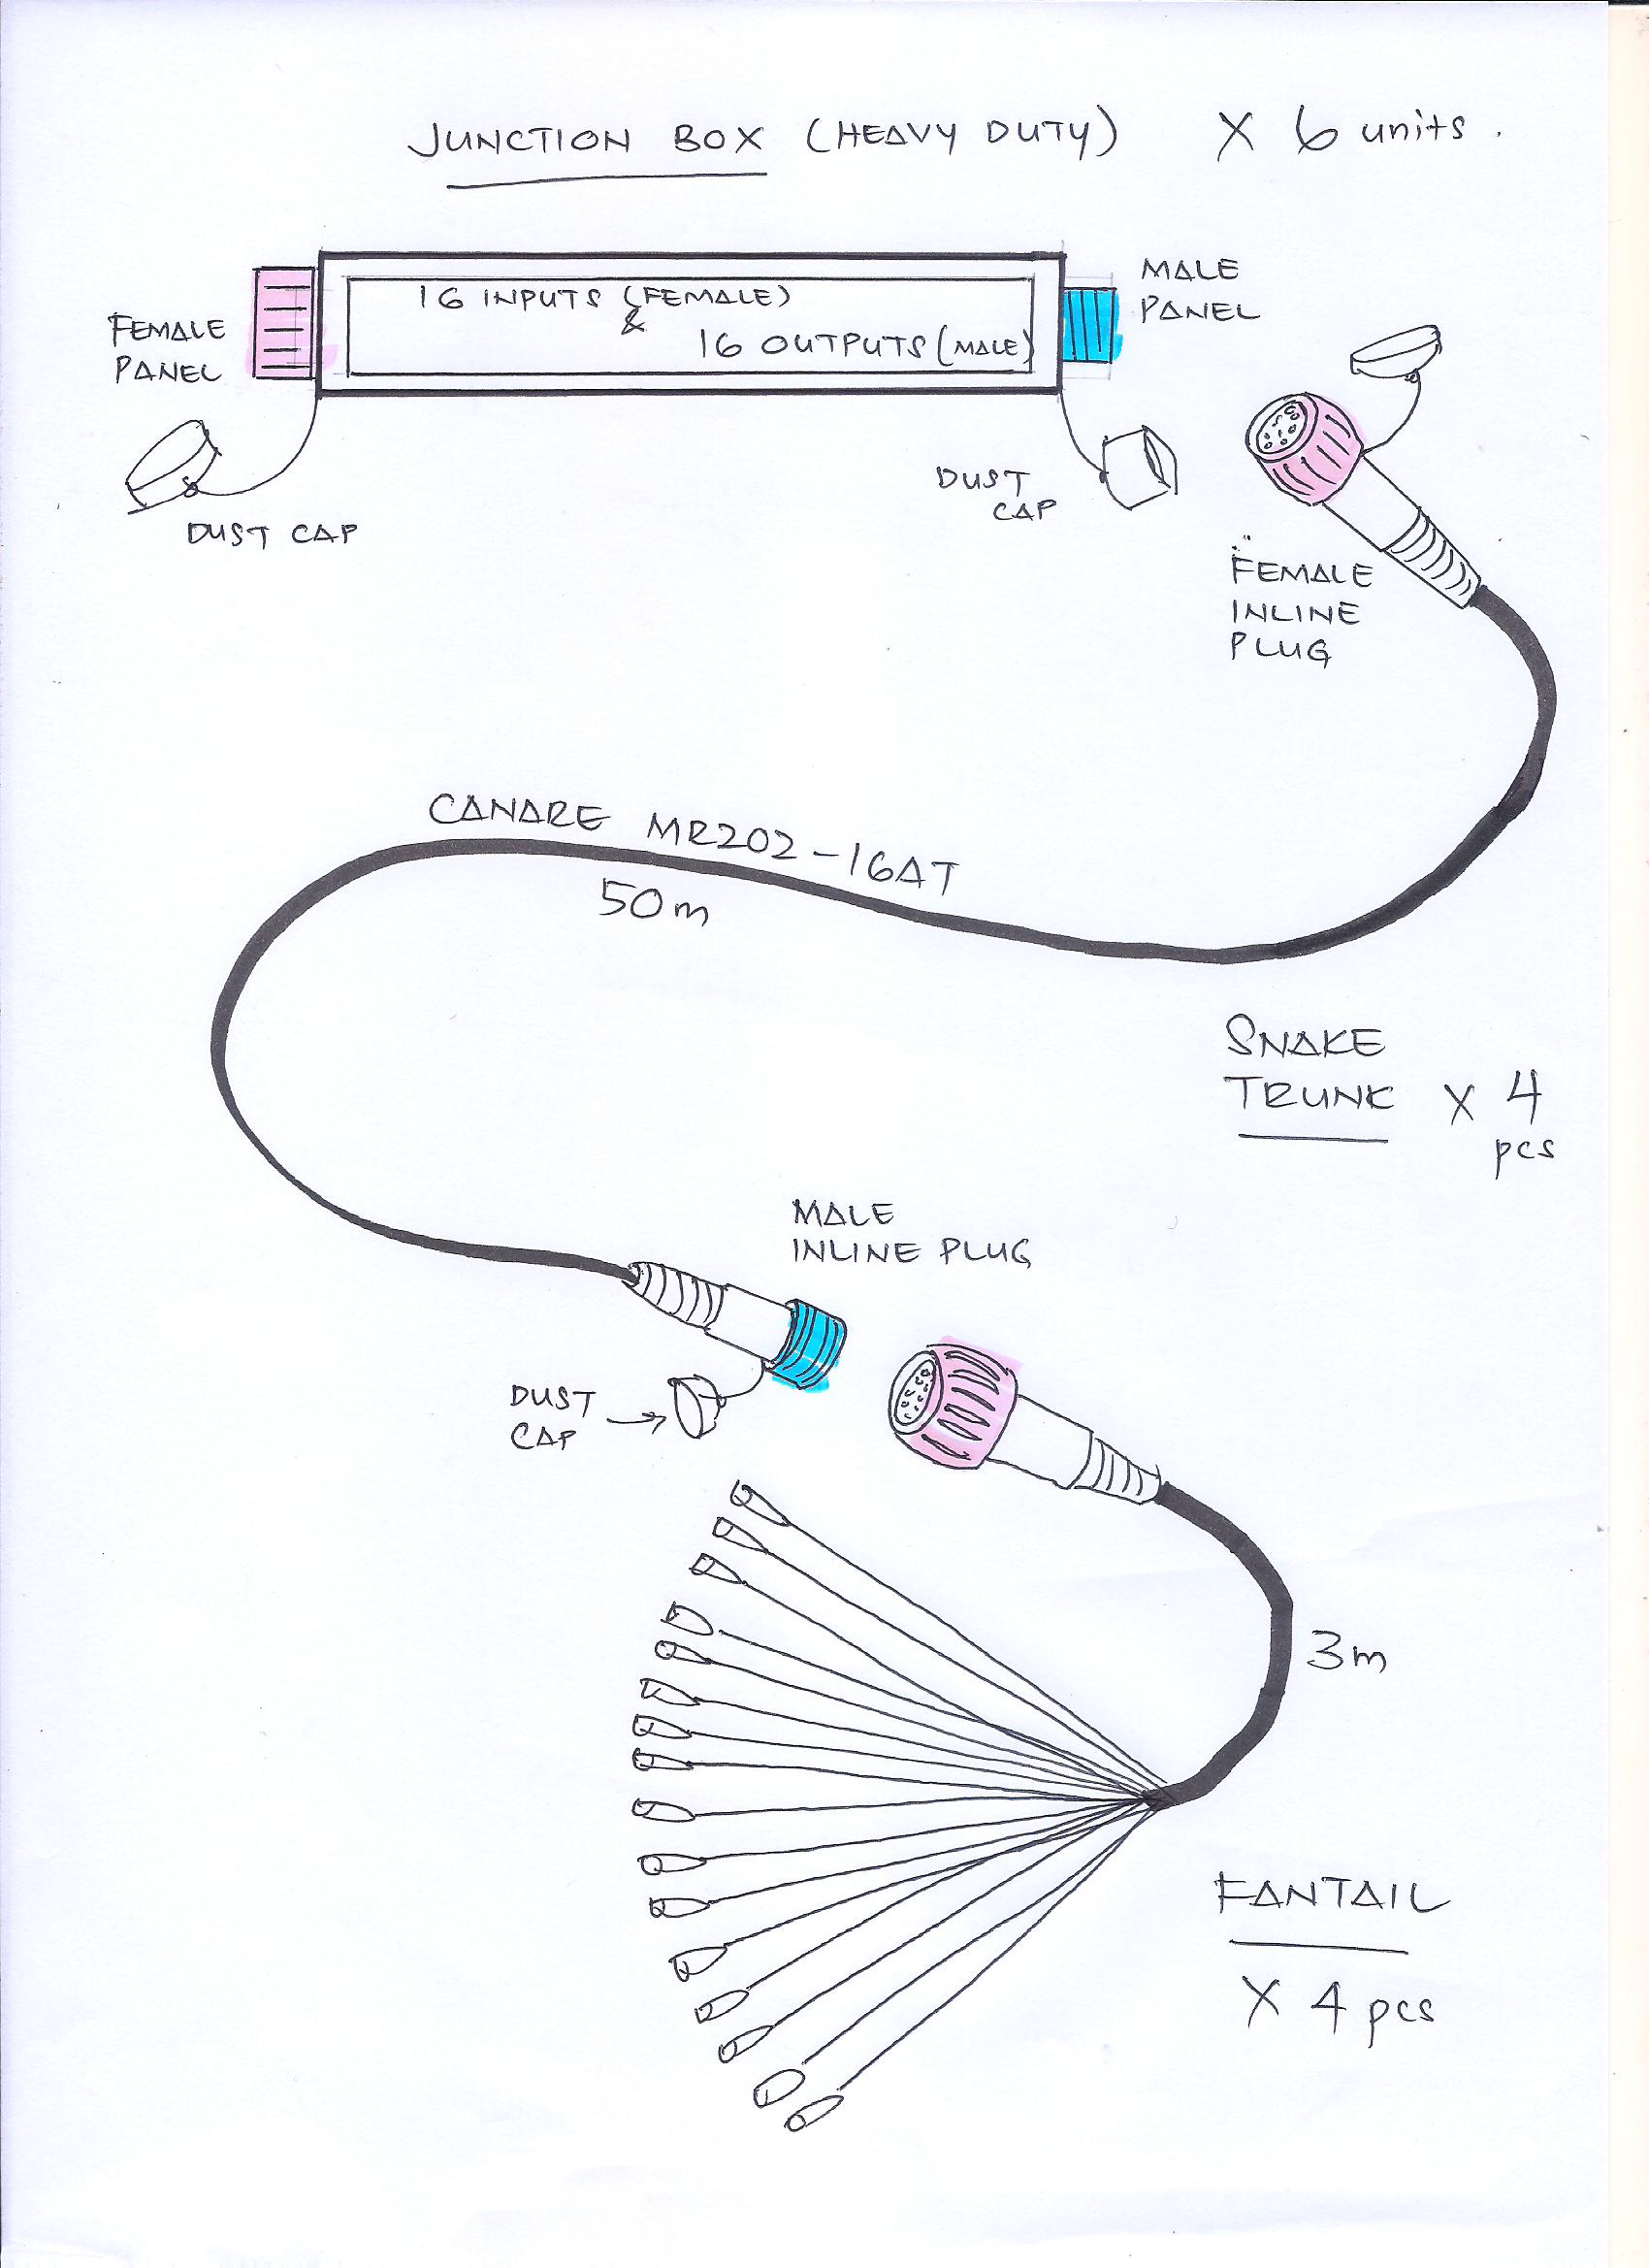 JUNCTION BOX (HEAVY DUTY) X 6 units.
16 INPUTS (FEMALE)
&
16 OUTPUTS (MALE)
FEMALE
PANEL
MALE
PANEL
DUST CAP
DUST
CAP
FEMALE
INLINE
PLUG
CANARE MR202-16AT
50m
SNAKE
TRUNK X 4
pcs
MALE
INLINE PLUG
DUST
CAP
3m
FANTAIL
X 4 pcs